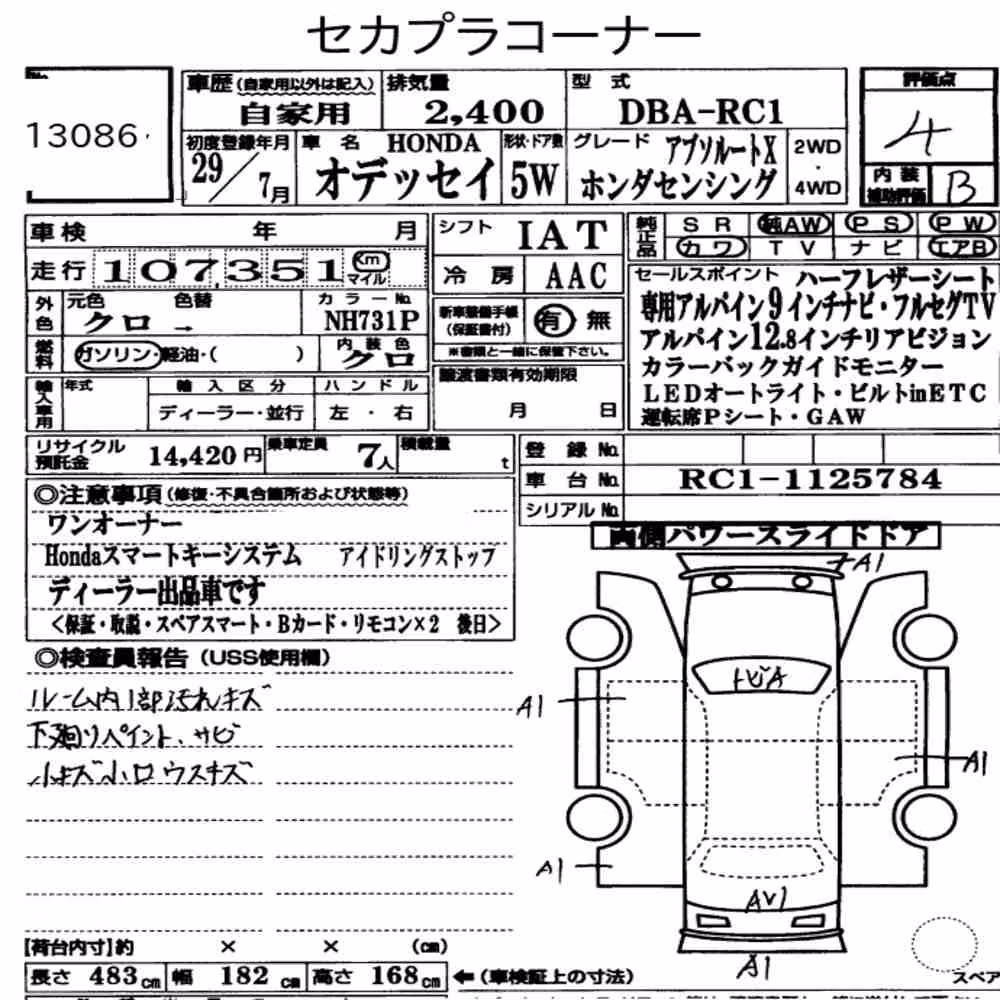 セカプラコーナー
No.
13086
車歴 (自家用以外は記入) 排気量 型式 評価点
自家用 2,400 DBA-RC1 4
初度登録年月 車名 HONDA 形状・ドア数 グレード アブソルートX 2WD
29/7月 オデッセイ 5W ホンダセンシング ・ 4WD
内装補助評価 B
車検 年 月 シフト IAT 純正品 SR 純AW PS PW
カワ TV ナビ エアB
走行 107,351 km マイル 冷房 AAC
セールスポイント ハーフレザーシート
専用アルパイン9インチナビ・フルセグTV
アルパイン12.8インチリアビジョン
カラーバックガイドモニター
LEDオートライト・ビルトinETC
運転席Pシート・GAW
外色 元色 色替 カラーNo.
クロ → NH731P
新車整備手帳 (保証書付) 有 無
※書類と一緒に保管下さい。
燃料 ガソリン・軽油・( ) 内装色 クロ
譲渡書類有効期限
月 日
輸入車用 年式 輸入区分 ハンドル
ディーラー・並行 左・右
リサイクル預託金 14,420円 乗車定員 7人 積載量 t
登録No.
車台No. RC1-1125784
シリアルNo.
◎注意事項 (修復・不具合箇所および状態等)
ワンオーナー
Hondaスマートキーシステム アイドリングストップ
ディーラー出品車です
<保証・取説・スペアスマート・Bカード・リモコン×2 後日>
両側パワースライドドア
◎検査員報告 (USS使用欄)
ルーム内1部汚れキズ
下廻りペイント、サビ
小キズ小凹ウスキズ
A1
トビA
A1
A1
A1
AV1
A1
【荷台内寸】約 × × (cm)
長さ 483cm 幅 182cm 高さ 168cm ←(車検証上の寸法)
スペア